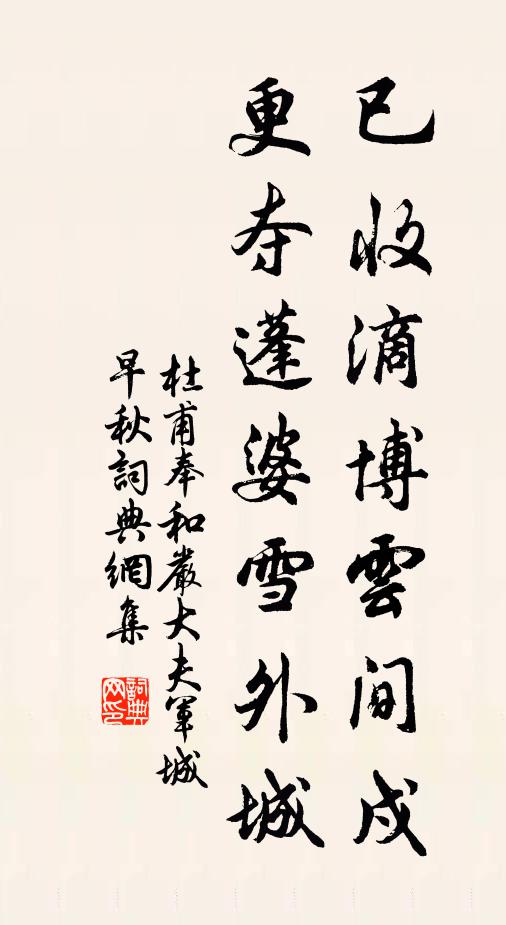 已收滴博雲间戍
更夺蓬婆雪外城
杜甫奉和嚴大夫軍城
早秋詞典網集
詞典网印